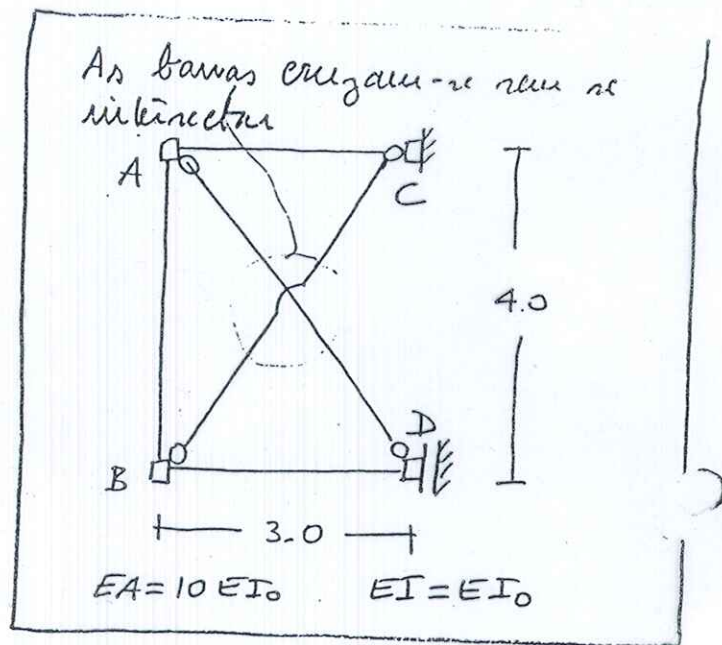 As barras cruzam-se sem se
intersectar
A
C
4.0
D
B
3.0
EA=10 EI₀ EI=EI₀